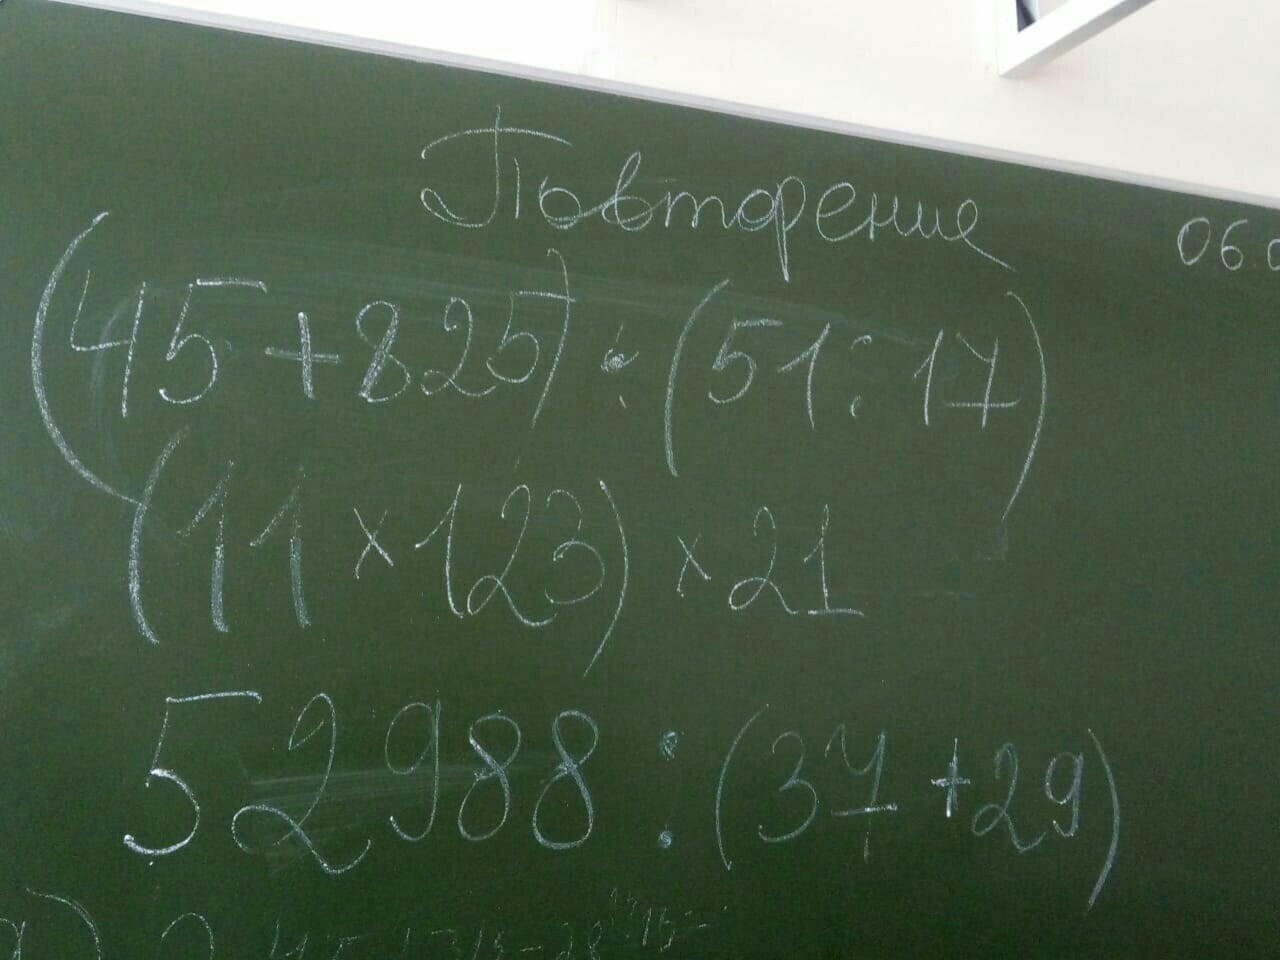 Повторение
06.0
(45+825) : (51:17)
(11×123)×21
52988:(37+29)